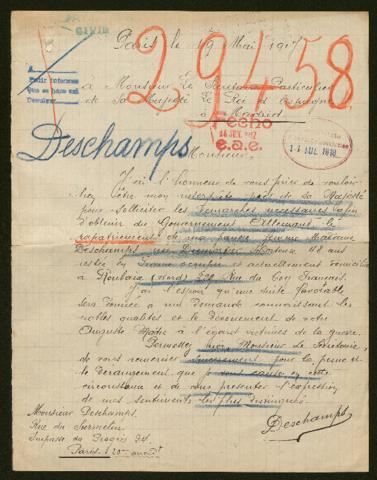 CIVIL
29458
Paris le 19 Mai 1917
A
Pedir informes
Que se hace así
Devolver
à Monsieur Le Secrétaire Particulier
de Sa Majesté Le Roi d'Espagne
à Madrid
Fecho
14 JUL 1917
e.a.e.
11 JUL 1918
Deschamps
Monsieur,
J'ai l'honneur de vous prier de vouloir
bien être mon interprète près de sa Majesté
pour solliciter les démarches nécessaires afin
d'obtenir du Gouvernement Allemand le
rapatriement de ma pauvre femme Madame
Deschamps née 48 ans
restée en pays occupé et actuellement domiciliée
à Roubaix (Nord) Rue du Coq Français.
J'ai l'espoir qu'une suite favorable
sera donnée à ma Demande connaissant les
nobles qualités et le Dévouement de votre
Auguste Maître à l'égard victimes de la guerre.
Permettez moi, Monsieur le Secrétaire,
de vous remercier sincèrement pour la peine et
le Dérangement que je vous cause en cette
circonstance et de vous présenter l'expression
de mes sentiments les plus distingués.
Deschamps
Monsieur Deschamps.
Rue du Surmelin
Impasse du Progrès
Paris